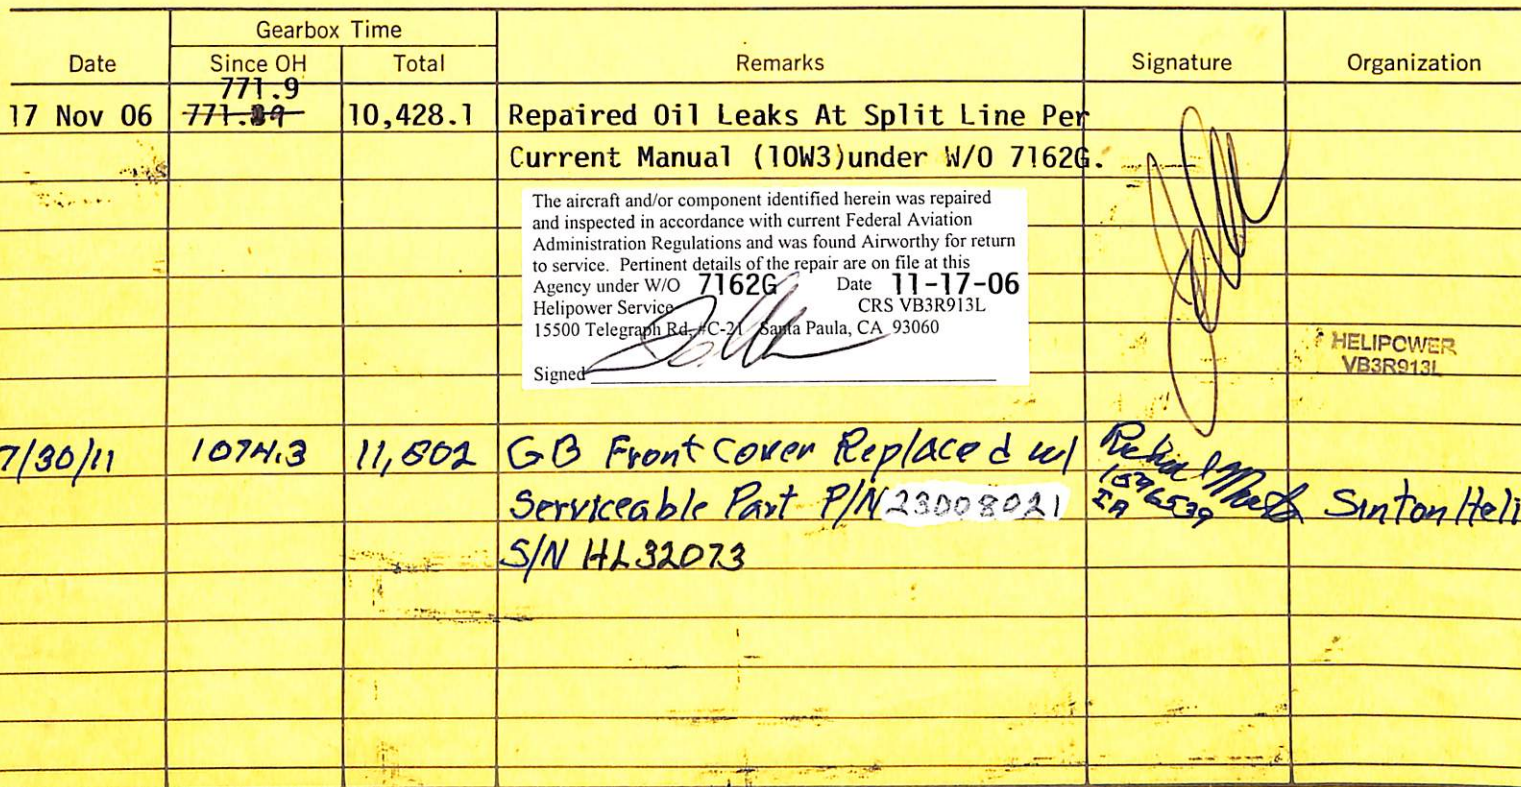 Gearbox Time
Date Since OH Total Remarks Signature Organization
771.9
17 Nov 06 10,428.1 Repaired Oil Leaks At Split Line Per
Current Manual (10W3)under W/O 7162G.
The aircraft and/or component identified herein was repaired
and inspected in accordance with current Federal Aviation
Administration Regulations and was found Airworthy for return
to service. Pertinent details of the repair are on file at this
Agency under W/O 7162G Date 11-17-06
Helipower Service CRS VB3R913L
15500 Telegraph Rd. #C-21 Santa Paula, CA 93060
Signed
HELIPOWER
VB3R913L
7/30/11 1074.3 11,802 GB Front Cover Replaced w/
Serviceable Part P/N 23008021 IA Sinton Heli
S/N HL32073